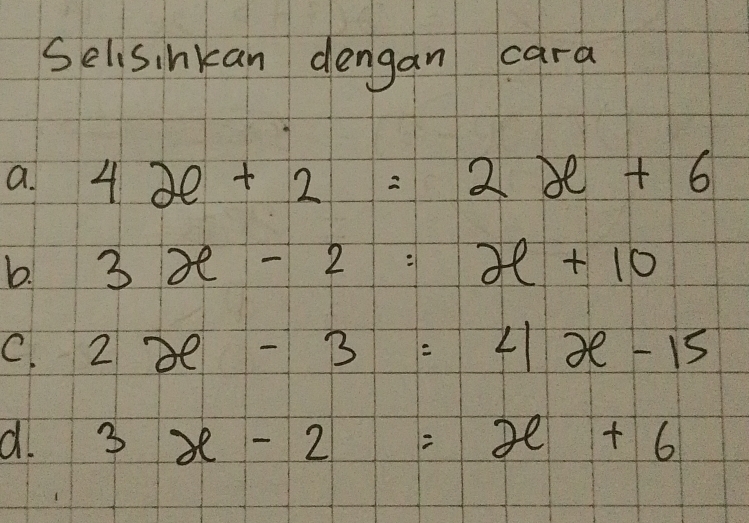 Selisihkan dengan cara
a. 4x + 2 = 2x + 6
b. 3x - 2 = x + 10
c. 2x - 3 = 4x - 15
d. 3x - 2 = x + 6